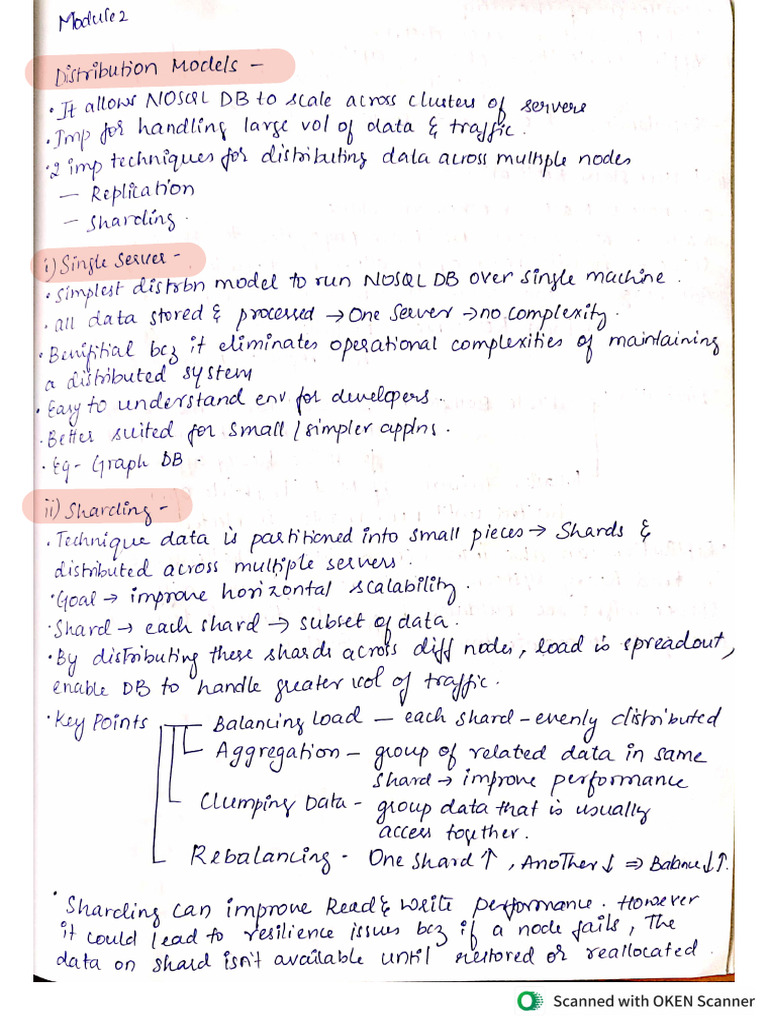 Module 2
Distribution Models -
• It allows NOSQL DB to scale across clusters of servers
• Imp for handling large vol of data & traffic.
• 2 imp techniques for distributing data across multiple nodes
— Replication
— Sharding.
i) Single Server -
• Simplest distrbn model to run NOSQL DB over single machine.
• all data stored & processed → One Server → no complexity.
• Benifitial bcz it eliminates operational complexities of maintaining
a distributed system
• Easy to understand env for developers.
• Better suited for small / simpler applns.
• Eg - Graph DB.
ii) Sharding -
• Technique data is partitioned into small pieces → Shards &
distributed across multiple servers.
• Goal → improve horizontal scalability.
• Shard → each shard → subset of data.
• By distributing these shards across diff nodes, load is spreadout,
enable DB to handle greater vol of traffic.
• Key Points — Balancing Load — each shard - evenly distributed
Aggregation — group of related data in same
shard → improve performance
Clumping Data - group data that is usually
access together.
Rebalancing - One shard ↑, Another ↓ ⇒ Balance ↓↑.
• Sharding can improve Read & write performance. However
it could lead to resilience issues bcz if a node fails, The
data on shard isn't available until restored or reallocated.
Scanned with OKEN Scanner